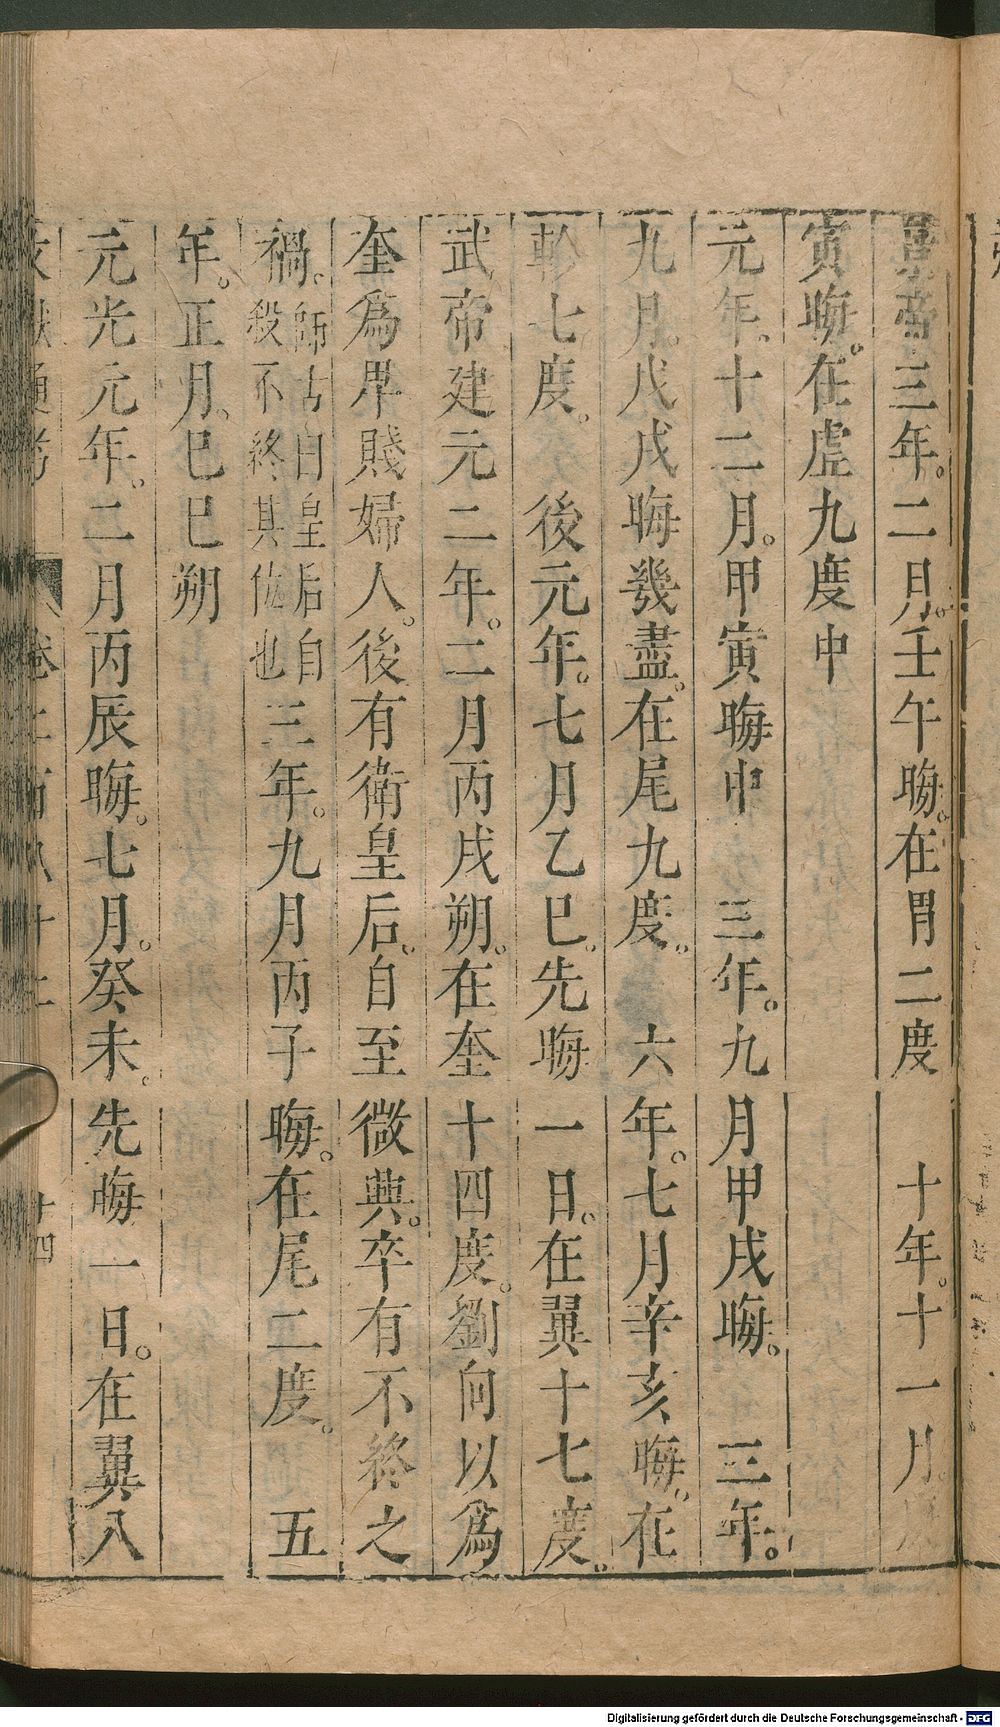 景帝三年。二月。壬午晦。在胃二度　十年。十一月。
寅晦。在虛九度中
元年。十二月。甲寅晦中　三年。九月甲戌晦。　三年。
九月。戊戌晦幾盡。在尾九度。　六年。七月辛亥晦。在
軫七度。　後元年。七月乙巳。先晦一日。在翼十七度。
武帝建元二年。二月丙戌朔。在奎十四度。劉向以爲
奎爲卑賤婦人。後有衛皇后。自至微興。卒有不終之
禍。師古曰皇后自殺不終其位也　三年。九月丙子晦。在尾二度。　五
年。正月。巳巳朔
元光元年。二月丙辰晦。七月。癸未。先晦一日。在翼八
卷二百八十二　十四
Digitalisierung gefördert durch die Deutsche Forschungsgemeinschaft - DFG